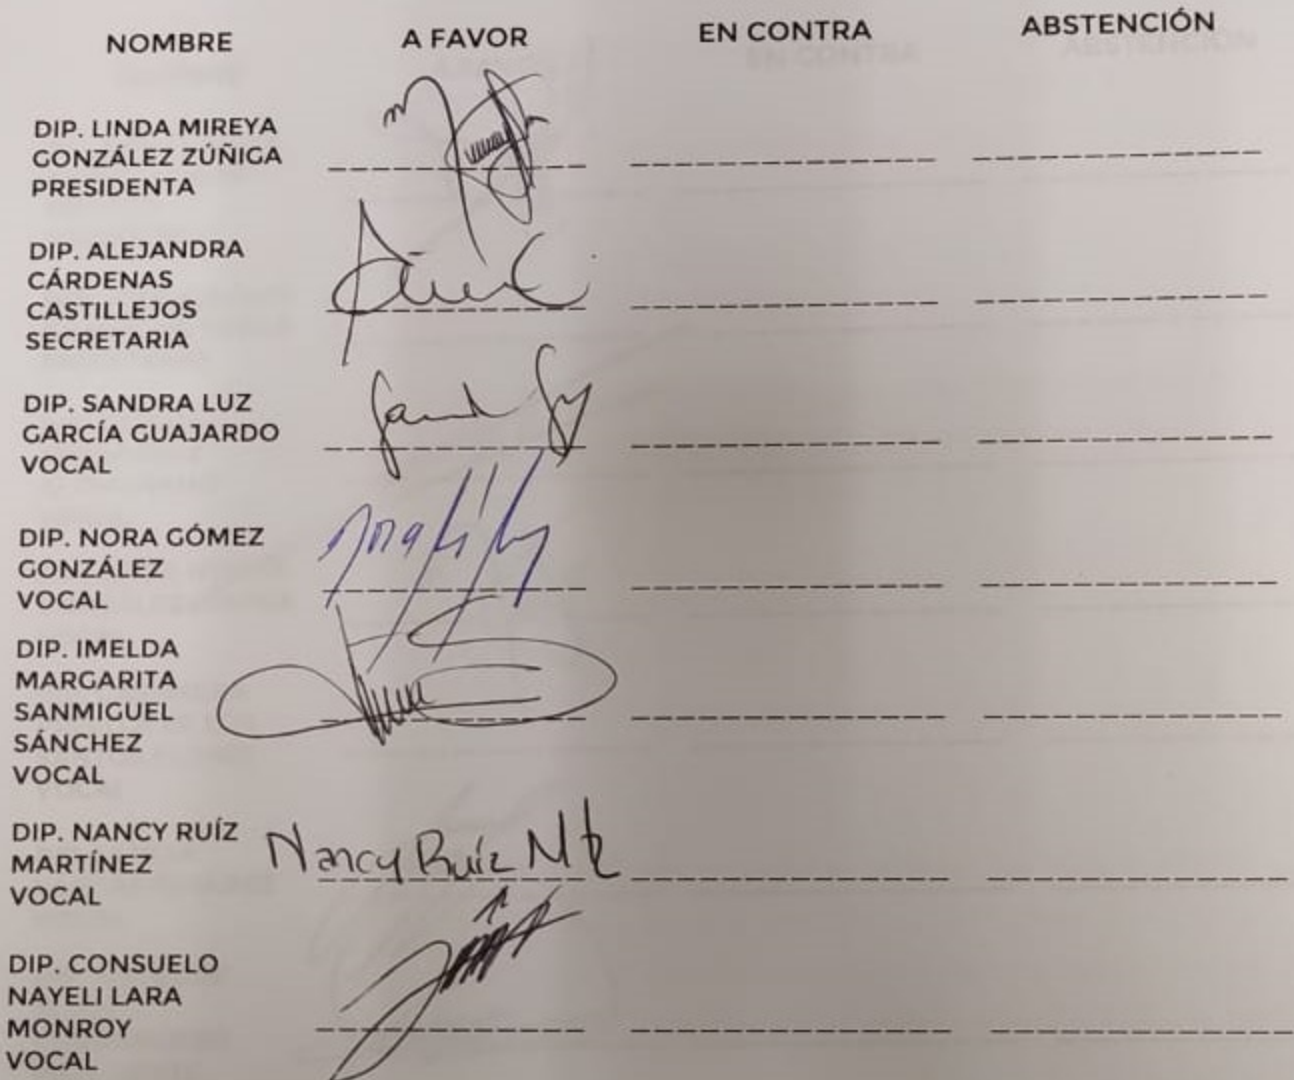 NOMBRE A FAVOR EN CONTRA ABSTENCIÓN
DIP. LINDA MIREYA
GONZÁLEZ ZÚÑIGA
PRESIDENTA
DIP. ALEJANDRA
CÁRDENAS
CASTILLEJOS
SECRETARIA
DIP. SANDRA LUZ
GARCÍA GUAJARDO
VOCAL
DIP. NORA GÓMEZ
GONZÁLEZ
VOCAL
DIP. IMELDA
MARGARITA
SANMIGUEL
SÁNCHEZ
VOCAL
DIP. NANCY RUÍZ
MARTÍNEZ
VOCAL
Nancy Ruíz Mtz
DIP. CONSUELO
NAYELI LARA
MONROY
VOCAL